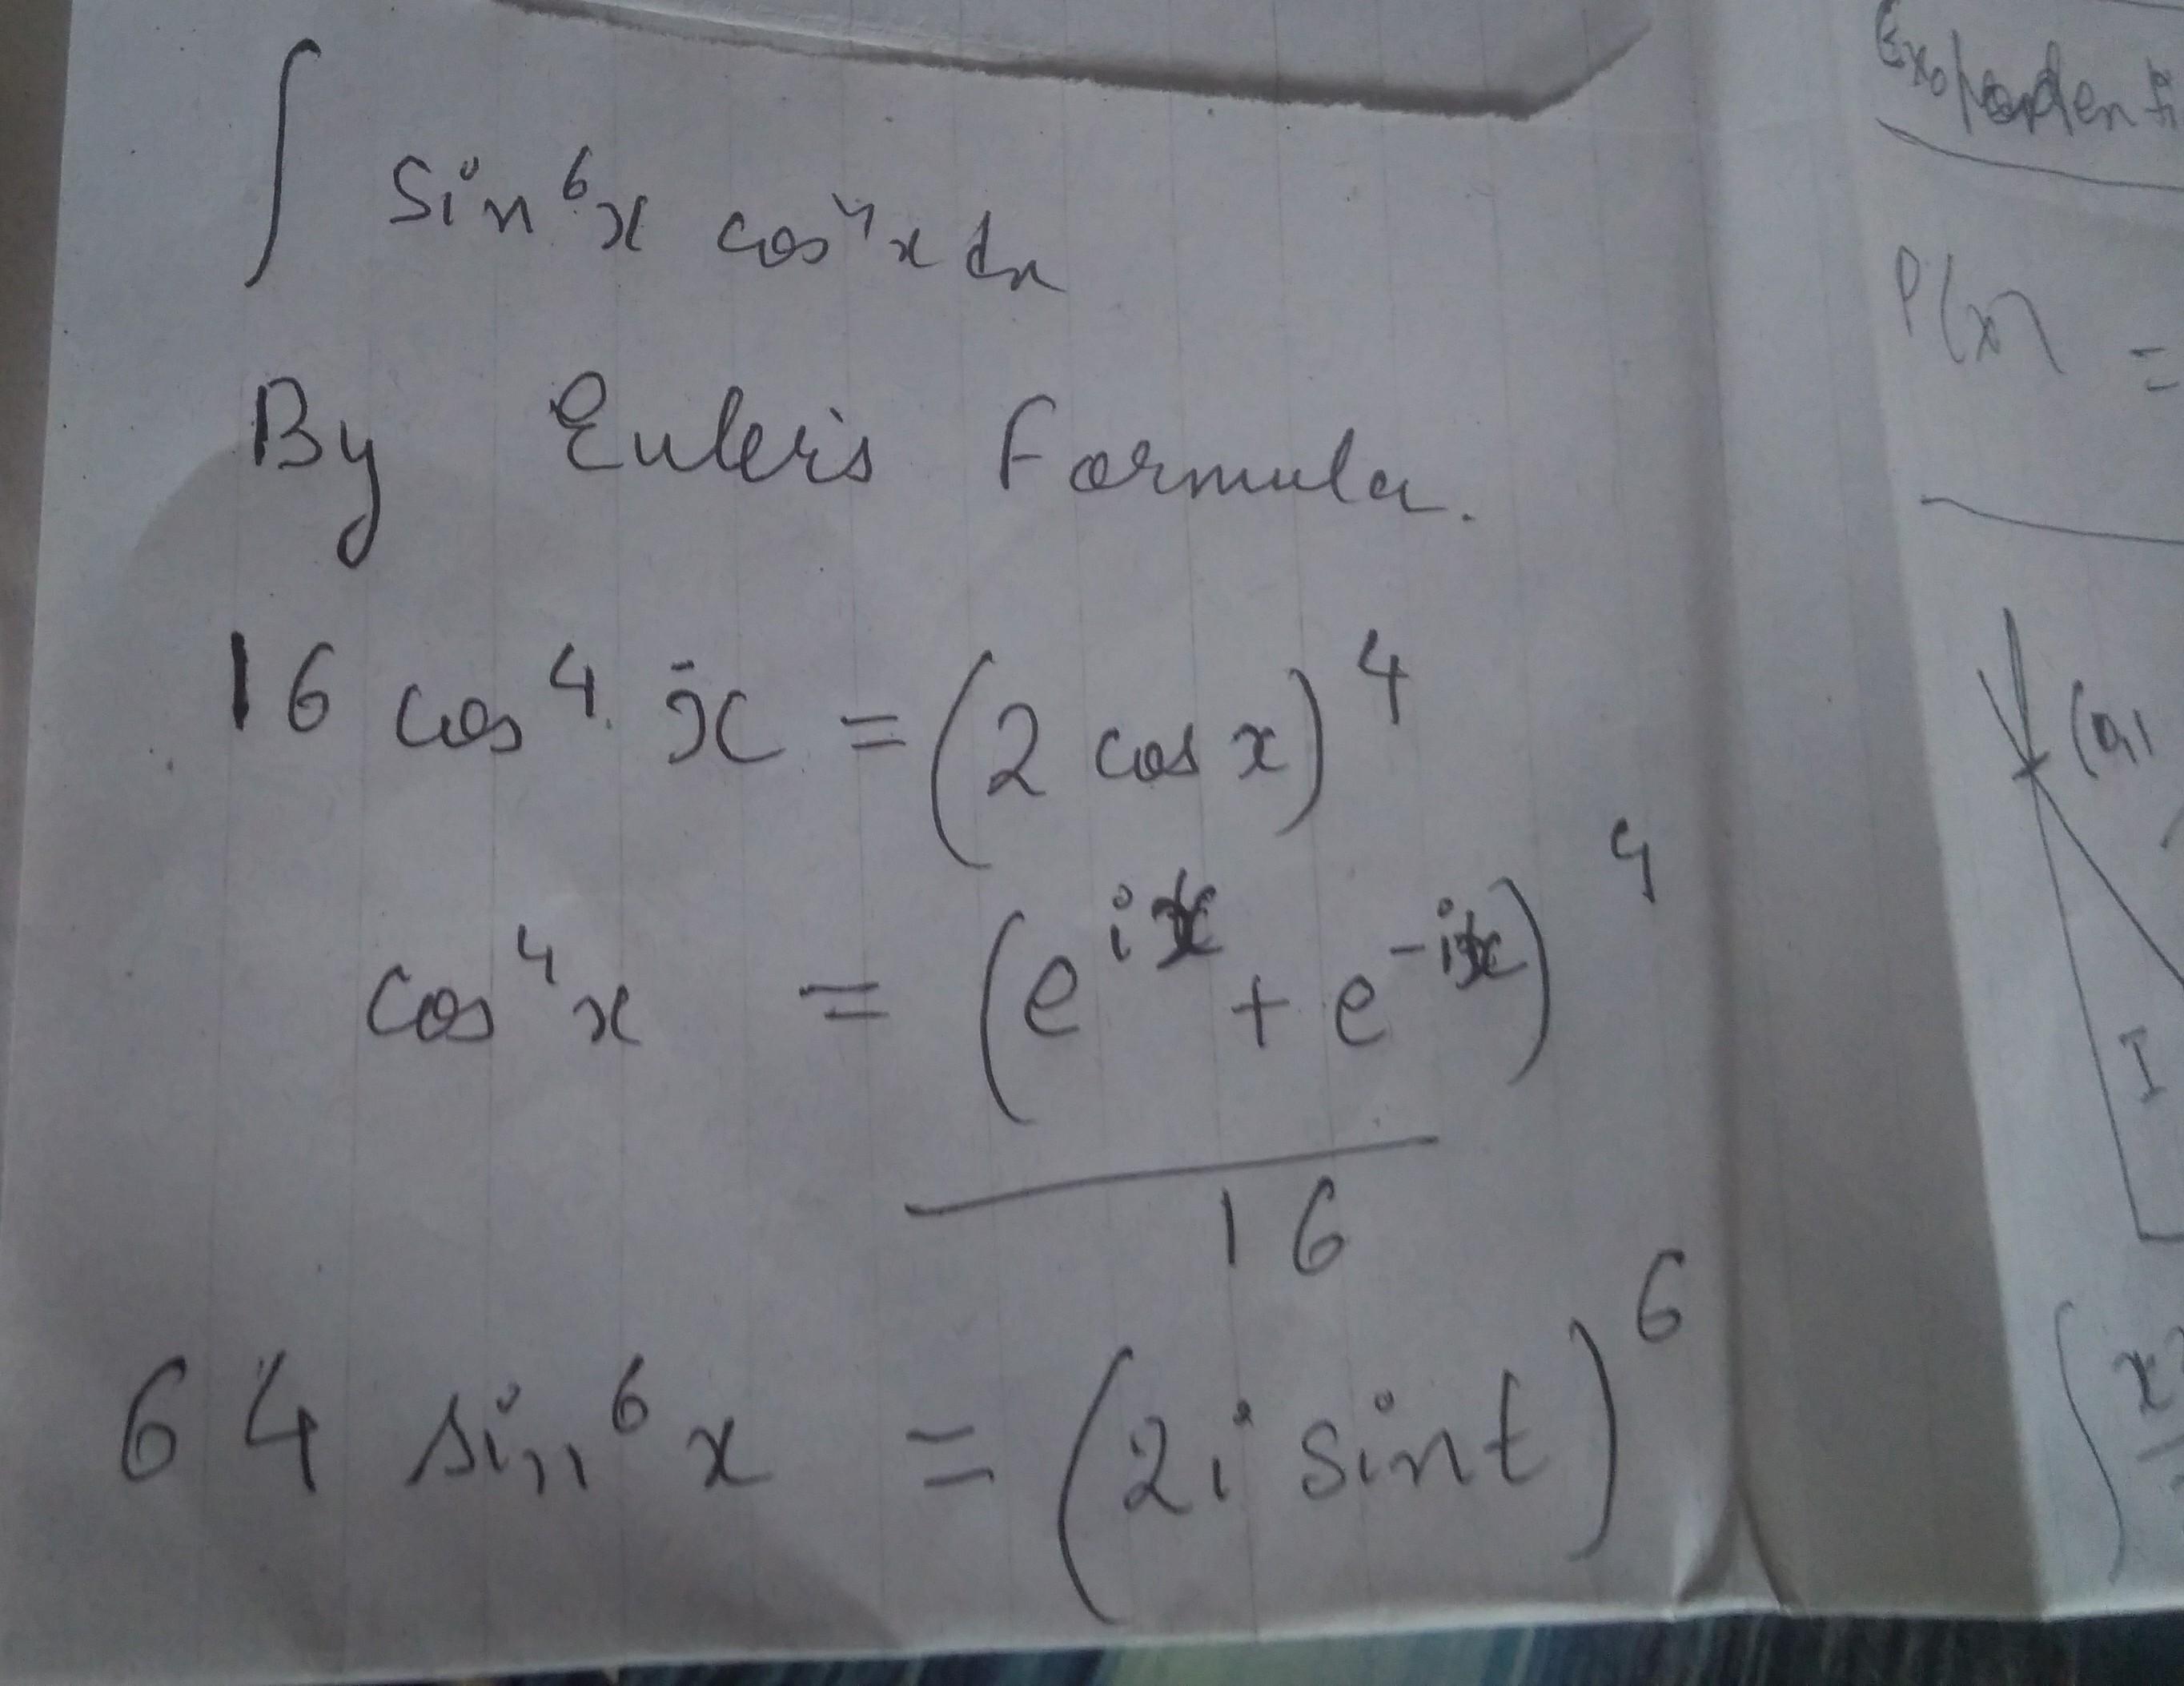 ∫ sin⁶x cos⁴x dx
By Euler's Formula.
16 cos⁴ x = (2 cos x)⁴
cos⁴x = (e^{ix} + e^{-ix})⁴
16
64 sin⁶ x = (2i sint)⁶
P(x) =
I